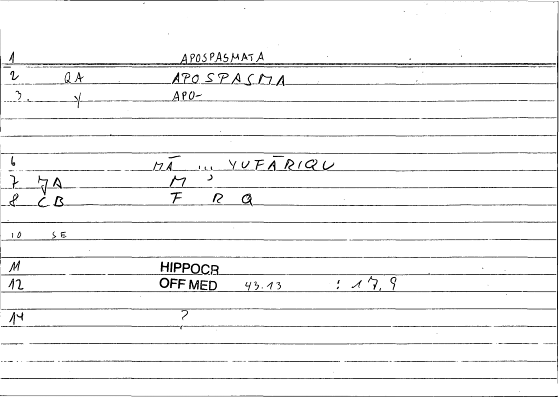 1 APOSPASMATA
2 QA APOSPASMA
3. Y APO-
6 MĀ ... YUFĀRIQU
7 JA M
8 CB F R Q
10 SE
M HIPPOCR
12 OFF MED 43.13 : 17,9
14 ?